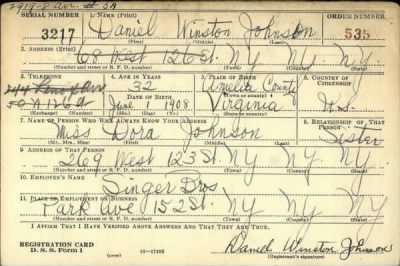 2919-8 Ave. # 3A
SERIAL NUMBER 1. NAME (Print) ORDER NUMBER
3217 Daniel Winston Johnson 535
(First) (Middle) (Last)
2. ADDRESS (Print)
68 West 126 St. N.Y. N.Y. N.Y.
(Number and street or R. F. D. number) (Town) (County) (State)
3. TELEPHONE 4. AGE IN YEARS 5. PLACE OF BIRTH 6. COUNTRY OF CITIZENSHIP
244 Ave 32 Amelia County
DATE OF BIRTH (Town or county)
126 St June 1 1908 Virginia U.S.
(Mo.) (Day) (Yr.) (State or country)
7. NAME OF PERSON WHO WILL ALWAYS KNOW YOUR ADDRESS 8. RELATIONSHIP OF THAT PERSON
Miss Dora Johnson Sister
(Mr., Mrs., Miss) (First) (Middle) (Last)
9. ADDRESS OF THAT PERSON
269 West 123 St. N.Y. N.Y. N.Y.
(Number and street or R. F. D. number) (Town) (County) (State)
10. EMPLOYER'S NAME
Singer Bros
11. PLACE OF EMPLOYMENT OR BUSINESS
Park Ave 152 St. N.Y. N.Y. N.Y.
(Number and street or R. F. D. number) (Town) (County) (State)
I AFFIRM THAT I HAVE VERIFIED ABOVE ANSWERS AND THAT THEY ARE TRUE.
REGISTRATION CARD
D. S. S. Form 1 (over) 16—17105 Daniel Winston Johnson
(Registrant's signature)